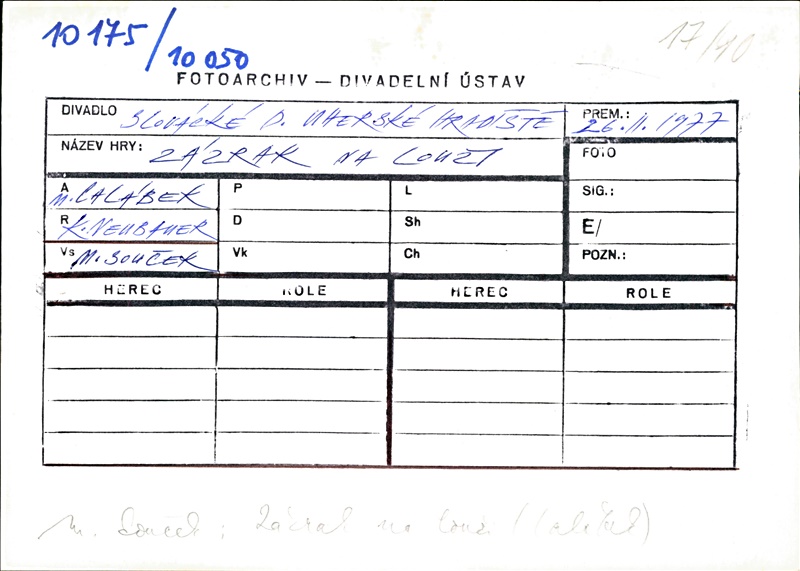 10 175/10 050
17/10
FOTOARCHIV — DIVADELNÍ ÚSTAV
DIVADLO SLOVÁCKÉ D. UHERSKÉ HRADIŠTĚ
PREM.: 26.11.1977
NÁZEV HRY: ZÁZRAK NA LOUŽI
FOTO
A M. CALÁBEK P L SIG.:
R K. NEUBAUER D Sh E/
Vs M. SOUČEK Vk Ch POZN.:
HEREC ROLE HEREC ROLE
M. Souček : Zázrak na louži